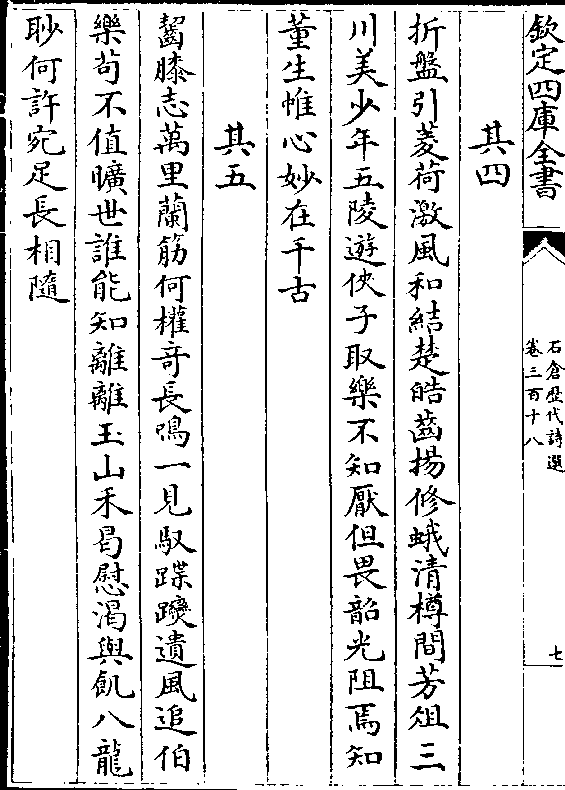 欽定四庫全書
石倉歷代詩選
卷三百十八
七
其四
折盤引菱荷激風和結楚皓齒揚修蛾清樽間芳俎三
川美少年五陵遊俠子取樂不知厭但畏韶光阻焉知
董生帷心妙在千古
其五
齧膝志萬里蘭筋何權奇長鳴一見馭蹀躞遺風追伯
樂苟不值曠世誰能知離離玉山禾曷慰渴與飢八龍
眇何許宛足長相隨